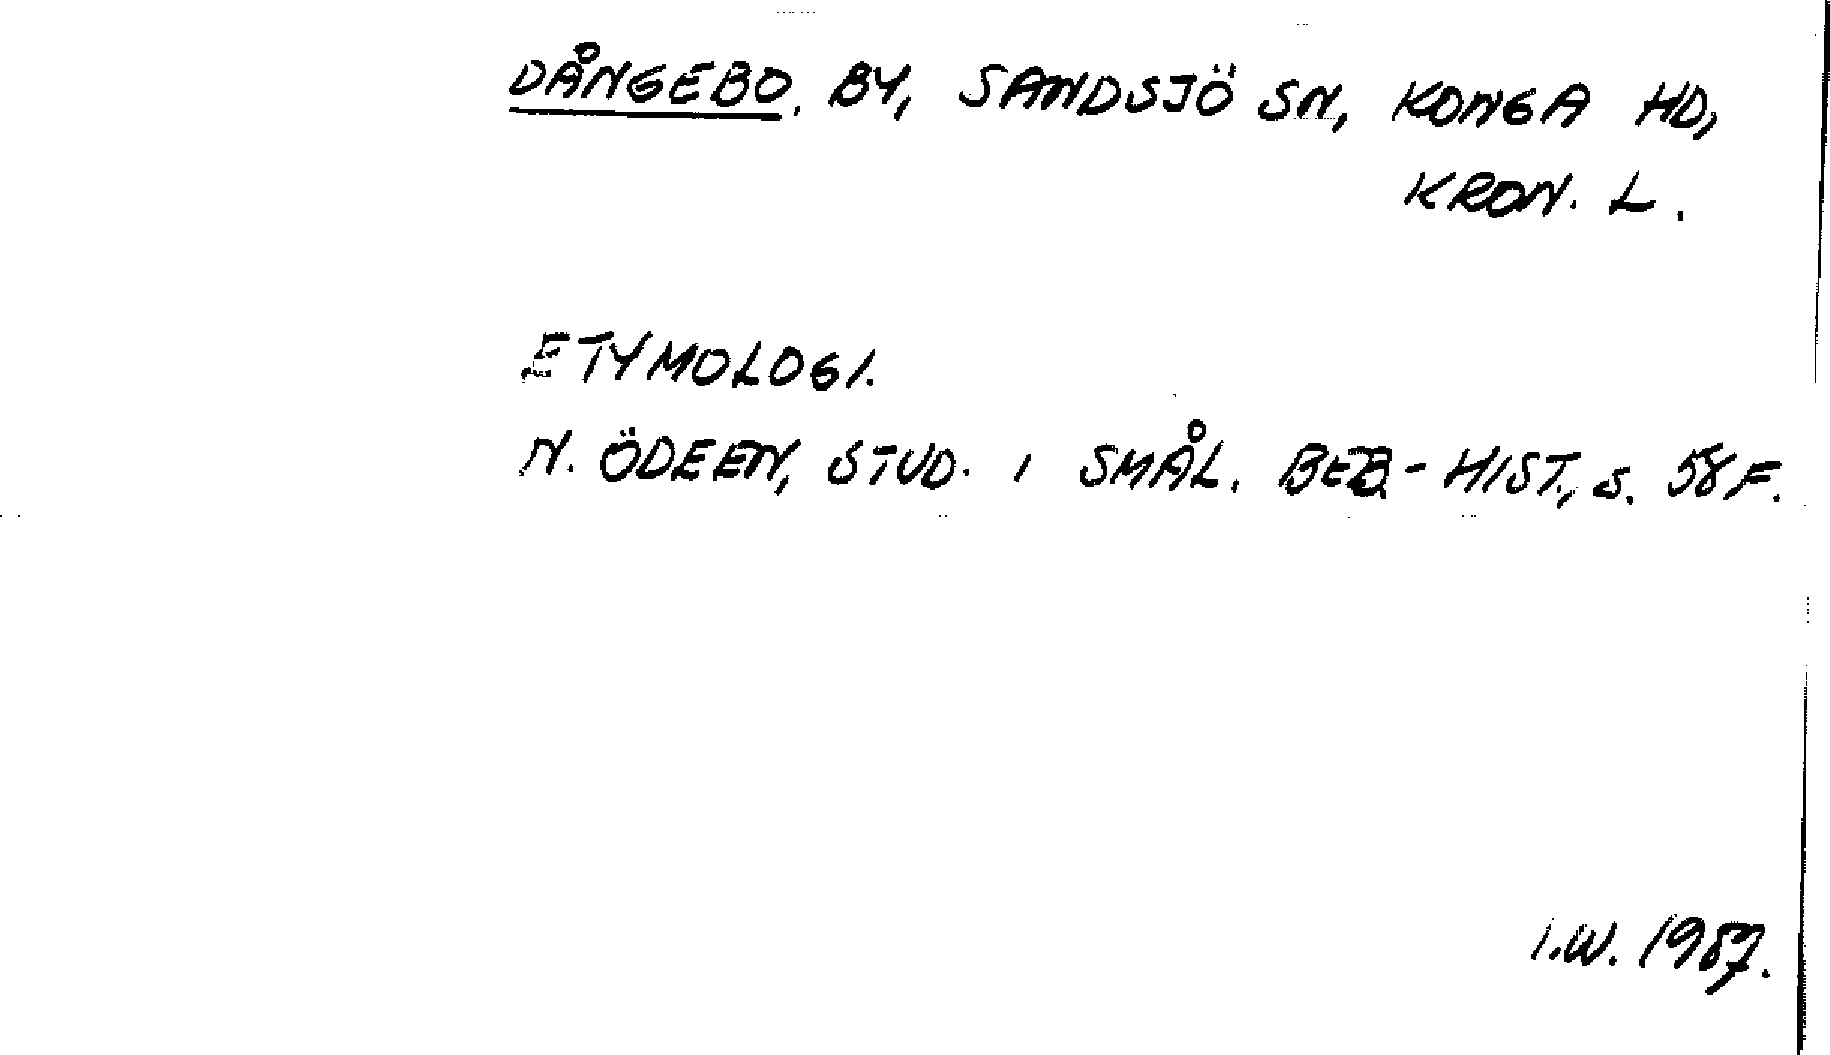 DÅNGEBO. BY, SANDSJÖ SN, KONGA HD,
KRON. L.
ETYMOLOGI.
N. ÖDEEN, STUD. I SMÅL. BEB-HIST., S. 58 F.
I.W. 1987.